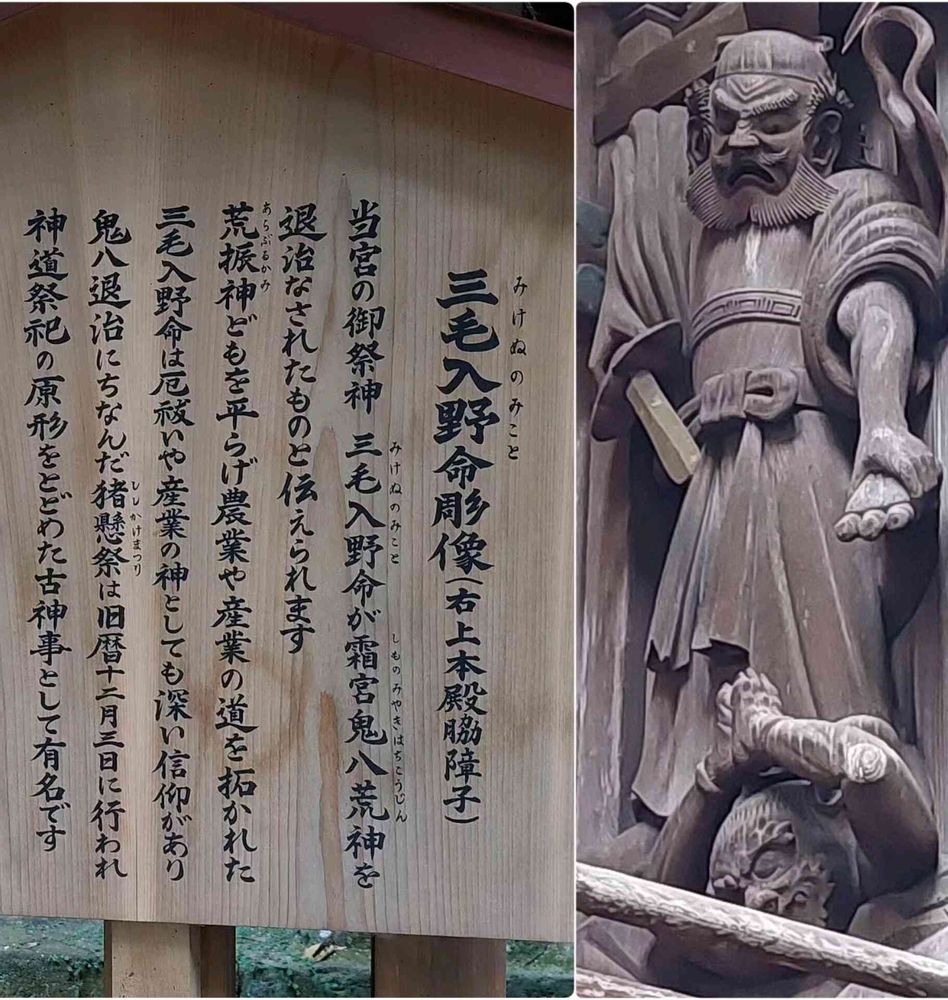 三毛入野命彫像（右上本殿脇障子）
みけぬのみこと
当宮の御祭神 三毛入野命が霜宮鬼八荒神を
みけぬのみこと
しものみやきはちこうじん
退治なされたものと伝えられます
荒振神どもを平らげ農業や産業の道を拓かれた
あらぶるかみ
三毛入野命は厄祓いや産業の神としても深い信仰があり
鬼八退治にちなんだ猪懸祭は旧暦十二月三日に行われ
ししかけまつり
神道祭祀の原形をとどめた古神事として有名です